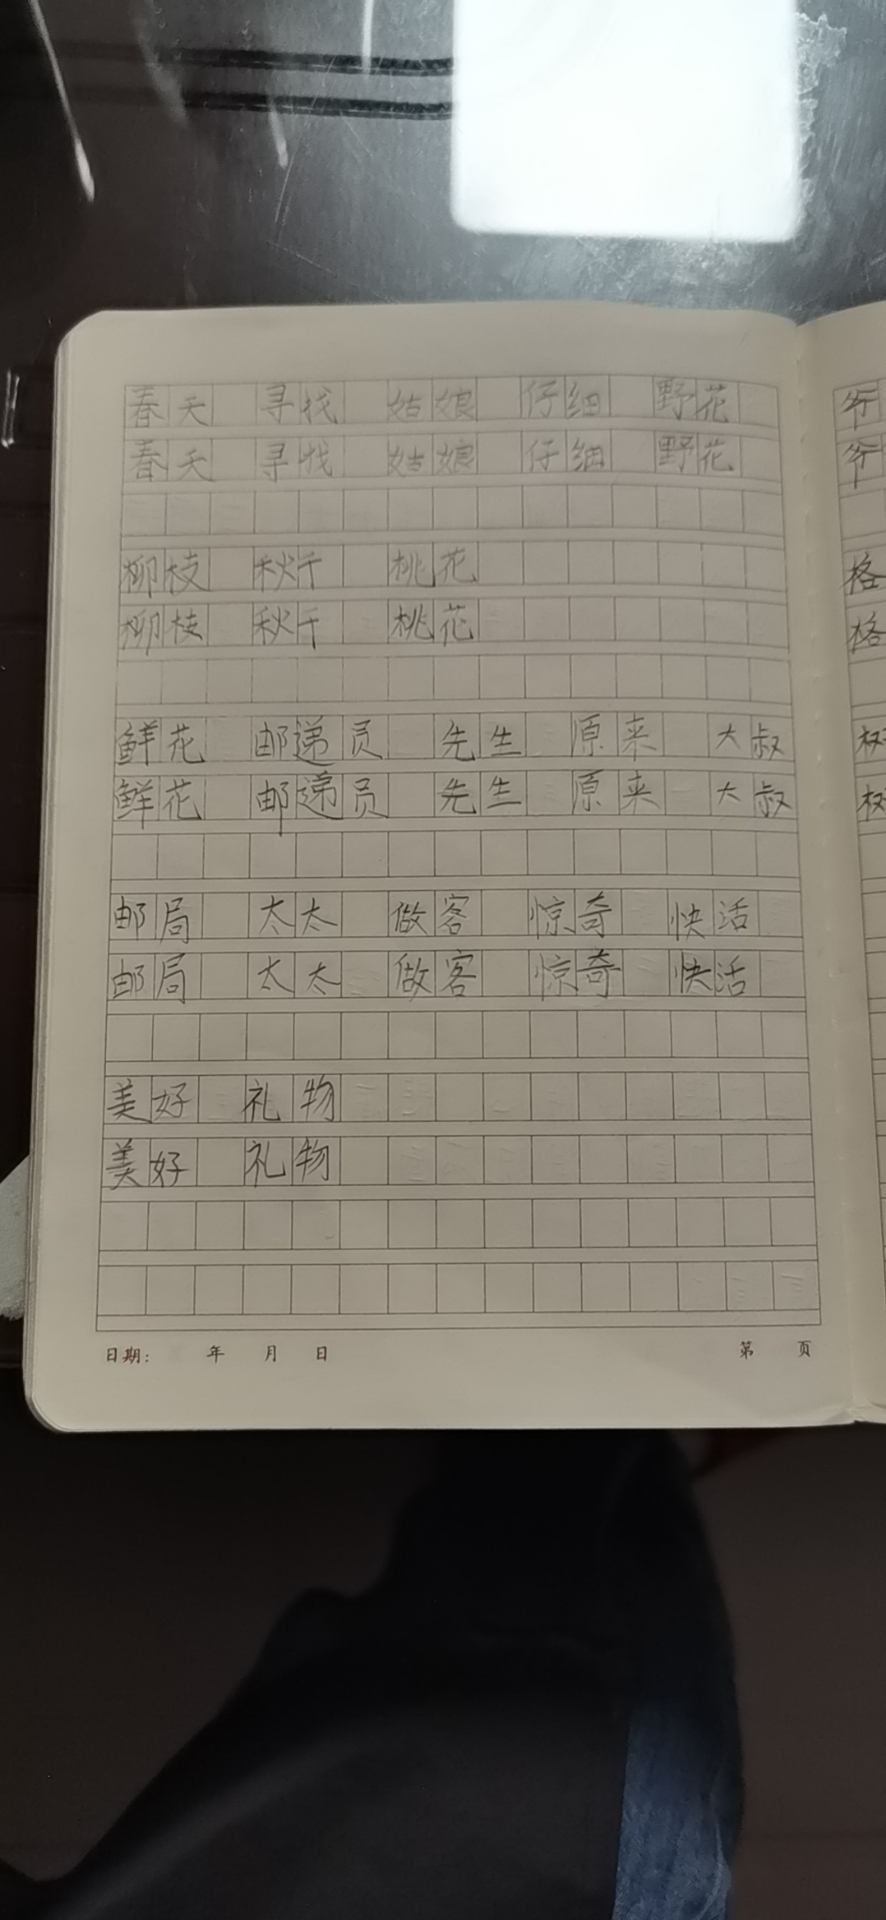 春天 寻找 姑娘 仔细 野花
春天 寻找 姑娘 仔细 野花
柳枝 秋千 桃花
柳枝 秋千 桃花
鲜花 邮递员 先生 原来 大叔
鲜花 邮递员 先生 原来 大叔
邮局 太太 做客 惊奇 快活
邮局 太太 做客 惊奇 快活
美好 礼物
美好 礼物
日期: 年 月 日 第 页
爷
爷
格
格